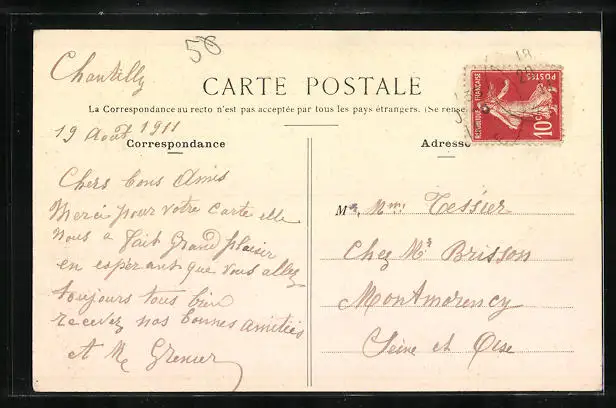 50
Chantilly
CARTE POSTALE
La Correspondance au recto n'est pas acceptée par tous les pays étrangers. (Se rense
19 Août 1911
Correspondance
Chers bons Amis
Merci pour votre carte elle
nous a fait grand plaisir
en espérant que vous allez
toujours tous bien
recevez nos bonnes amitiés
et Grenier
Adresse
M Mme Tessier
Chez Mr Brisson
Montmorency
Seine et Oise
RÉPUBLIQUE FRANÇAISE
POSTES
10c
18